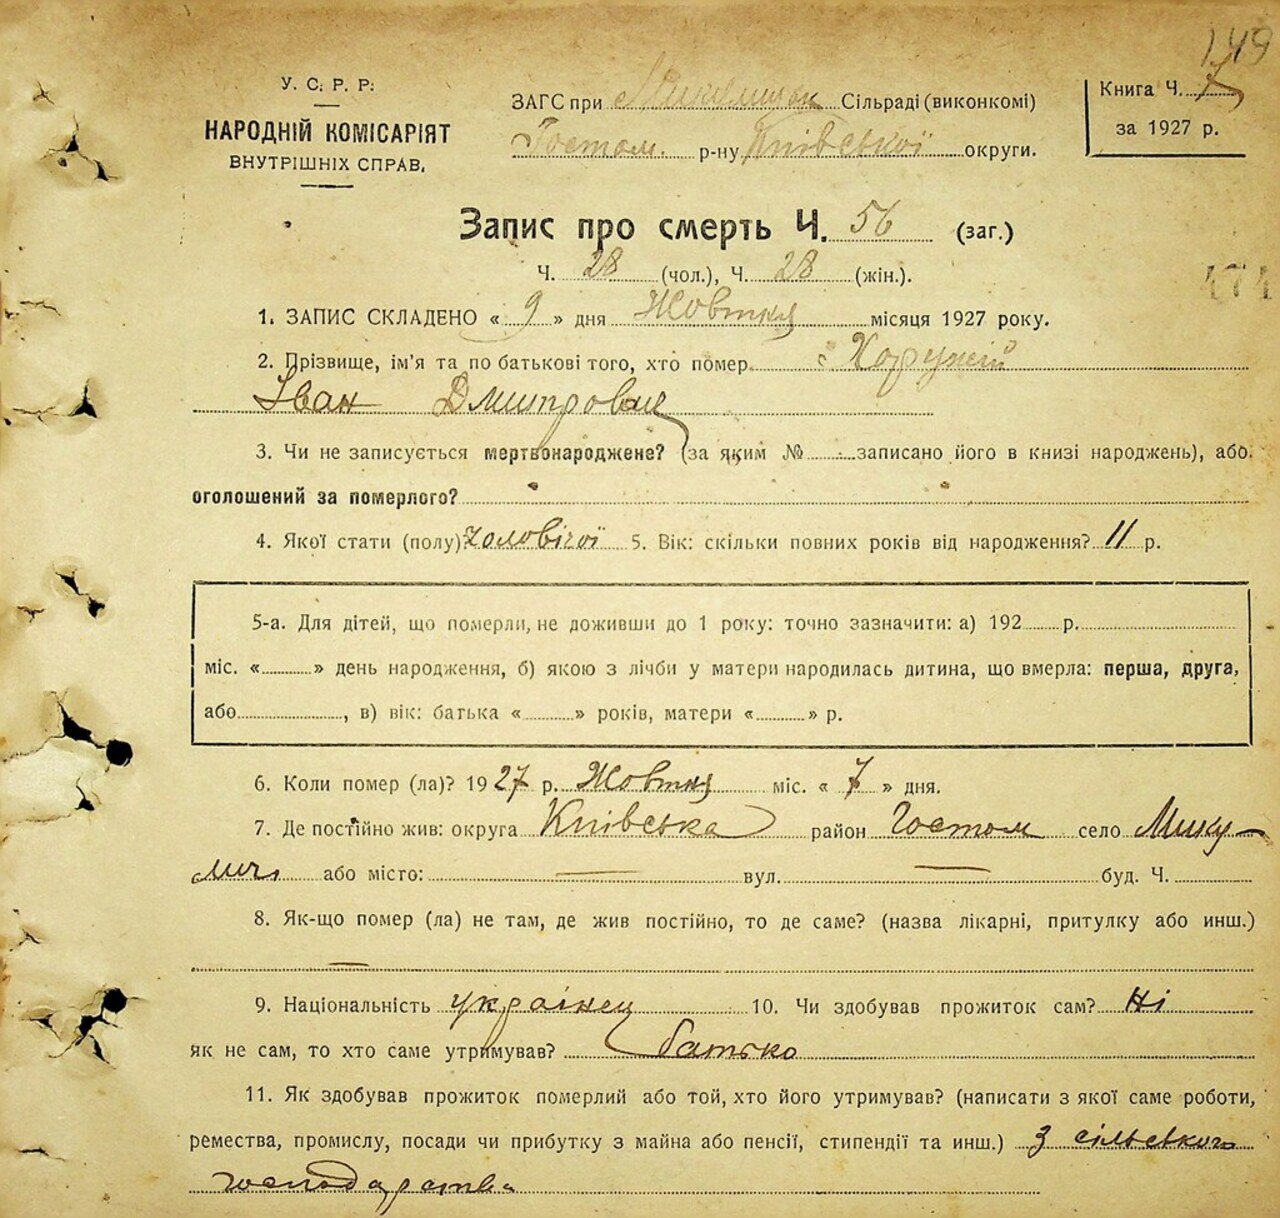 149
У. С. Р. Р.
НАРОДНІЙ КОМІСАРІЯТ
ВНУТРІШНІХ СПРАВ.
ЗАГС при Сільраді (виконкомі)
Гостом. р-ну Київської округи.
Книга Ч. 7
за 1927 р.
Запис про смерть Ч. 56 (заг.)
Ч. 28 (чол.), Ч. 28 (жін.).
1. ЗАПИС СКЛАДЕНО « 9 » дня Жовтня місяця 1927 року.
2. Прізвище, ім'я та по батькові того, хто помер
Іван Дмитрович
3. Чи не записується мертвонароджене? (за яким № записано його в книзі народжень), або
оголошений за померлого?
4. Якої стати (полу)? чоловічої 5. Вік: скільки повних років від народження? 11 р.
5-а. Для дітей, що померли, не доживши до 1 року: точно зазначити: а) 192 р.
міс. « » день народження, б) якою з лічби у матери народилась дитина, що вмерла: перша, друга,
або , в) вік: батька « » років, матери « » р.
6. Коли помер (ла)? 1927 р. Жовтня міс. « 7 » дня.
7. Де постійно жив: округа Київська район Гостом село Мику-
личі або місто: — вул. — буд. Ч.
8. Як-що помер (ла) не там, де жив постійно, то де саме? (назва лікарні, притулку або инш.)
—
9. Національність українец 10. Чи здобував прожиток сам? Ні
як не сам, то хто саме утримував? батько
11. Як здобував прожиток померлий або той, хто його утримував? (написати з якої саме роботи,
ремества, промислу, посади чи прибутку з майна або пенсії, стипендії та инш.) З сільського
господарства